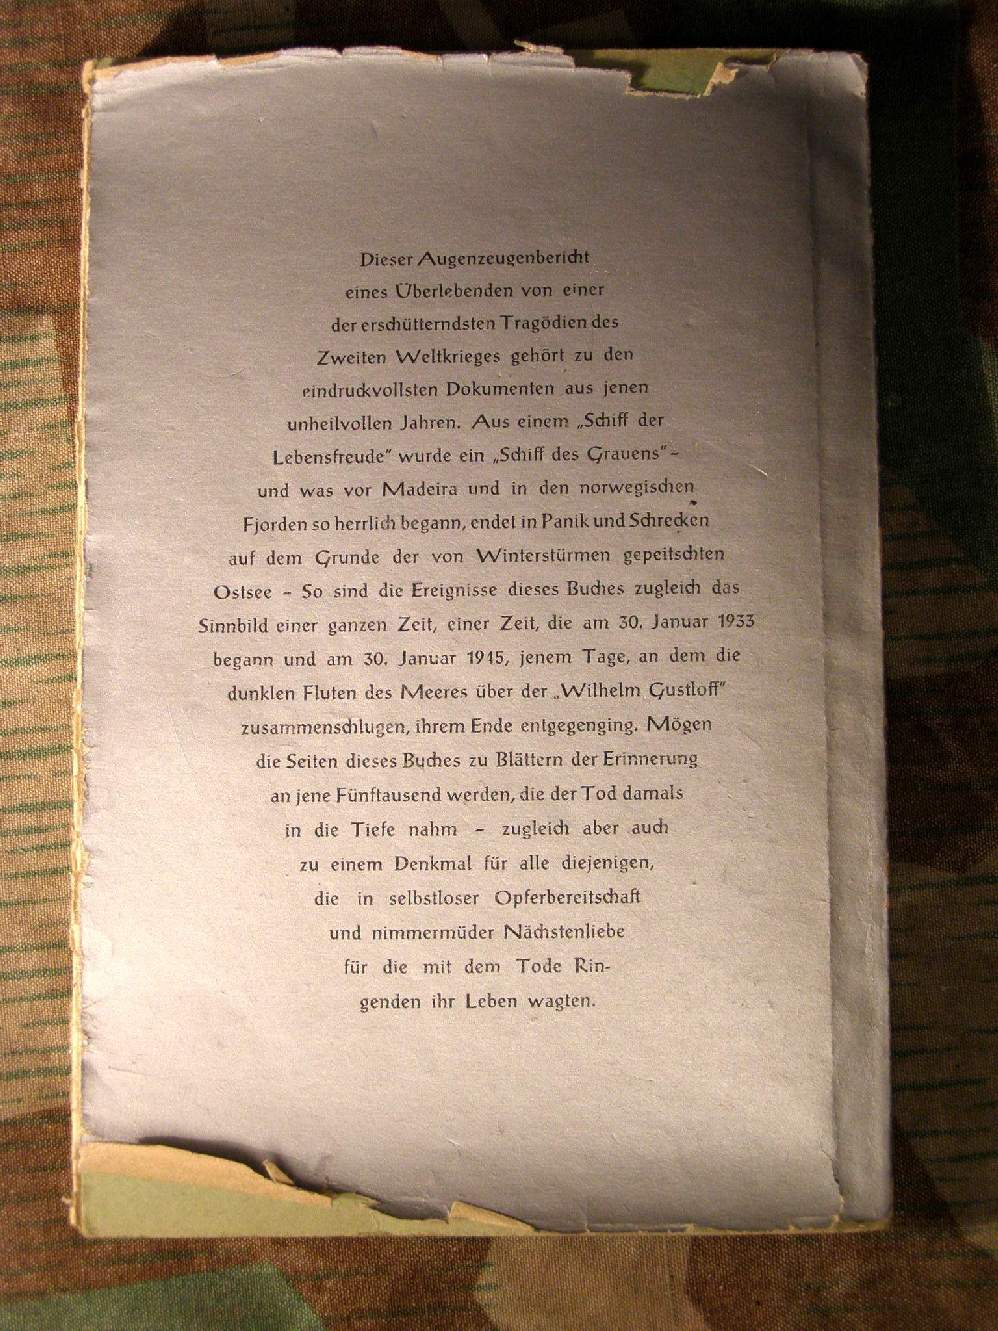 Dieser Augenzeugenbericht
eines Überlebenden von einer
der erschütterndsten Tragödien des
Zweiten Weltkrieges gehört zu den
eindruckvollsten Dokumenten aus jenen
unheilvollen Jahren. Aus einem „Schiff der
Lebensfreude“ wurde ein „Schiff des Grauens“ –
und was vor Madeira und in den norwegischen
Fjorden so herrlich begann, endet in Panik und Schrecken
auf dem Grunde der von Winterstürmen gepeitschten
Ostsee – So sind die Ereignisse dieses Buches zugleich das
Sinnbild einer ganzen Zeit, einer Zeit, die am 30. Januar 1933
begann und am 30. Januar 1945, jenem Tage, an dem die
dunklen Fluten des Meeres über der „Wilhelm Gustloff“
zusammenschlugen, ihrem Ende entgegenging. Mögen
die Seiten dieses Buches zu Blättern der Erinnerung
an jene Fünftausend werden, die der Tod damals
in die Tiefe nahm – zugleich aber auch
zu einem Denkmal für alle diejenigen,
die in selbstloser Opferbereitschaft
und nimmermüder Nächstenliebe
für die mit dem Tode Rin-
genden ihr Leben wagten.